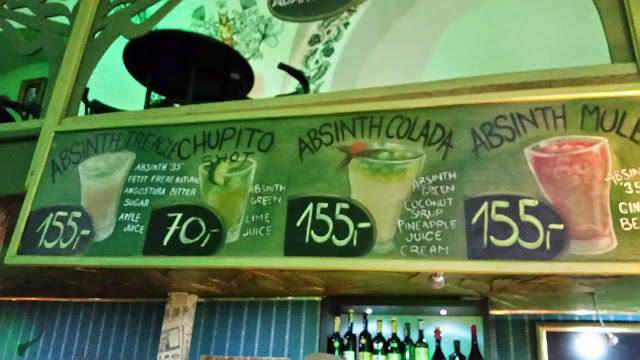 ABSINTH TREACLE
ABSINTH "35"
PETIT FRERE NATURAL
ANGOSTURA BITTER
SUGAR
APPLE
JUICE
155,-
CHUPITO
SHOT
ABSINTH
GREEN
LIME
JUICE
70,-
ABSINTH COLADA
ABSINTH
GREEN
COCONUT
SIRUP
PINEAPPLE
JUICE
CREAM
155,-
ABSINTH MULE
ABSIN
"35
GIN
BE
155,-